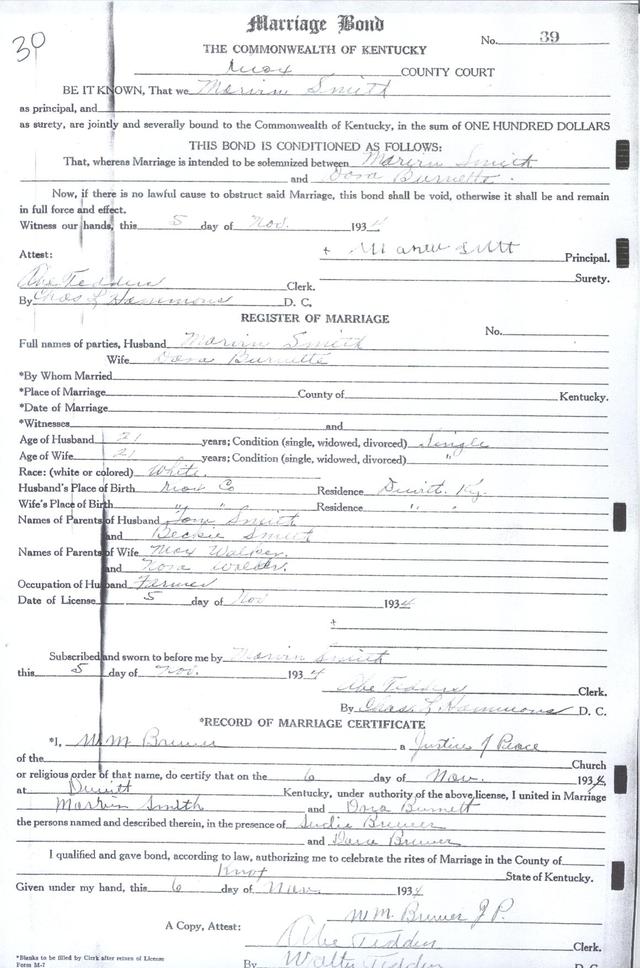 30
Marriage Bond
No. 39
THE COMMONWEALTH OF KENTUCKY
Knox COUNTY COURT
BE IT KNOWN, That we Marvin Smith
as principal, and
as surety, are jointly and severally bound to the Commonwealth of Kentucky, in the sum of ONE HUNDRED DOLLARS
THIS BOND IS CONDITIONED AS FOLLOWS:
That, whereas Marriage is intended to be solemnized between Marvin Smith
and Dora Burnette.
Now, if there is no lawful cause to obstruct said Marriage, this bond shall be void, otherwise it shall be and remain
in full force and effect.
Witness our hands, this 5 day of Nov. 1934
+ Principal.
Attest:
Surety.
Abe Tedders Clerk.
By Chas L Hammons D. C.
REGISTER OF MARRIAGE
No.
Full names of parties, Husband Marvin Smith
Wife Dora Burnette
*By Whom Married
*Place of Marriage County of Kentucky.
*Date of Marriage
*Witnesses and
Age of Husband 21 years; Condition (single, widowed, divorced) Single
Age of Wife 21 years; Condition (single, widowed, divorced) "
Race: (white or colored) White
Husband's Place of Birth Knox Co Residence Dewitt Ky.
Wife's Place of Birth " " Residence " "
Names of Parents of Husband Tom Smith
and Beckie Smith
Names of Parents of Wife Walker
and Nora Walker.
Occupation of Husband Farmer
Date of License 5 day of Nov 1934
+
Subscribed and sworn to before me by Marvin Smith
this 5 day of Nov. 1934
Abe Tedders Clerk.
By Chas L Hammons D. C.
*RECORD OF MARRIAGE CERTIFICATE
*I, W M Brewer a Justice of Peace
of the Church
or religious order of that name, do certify that on the 6 day of Nov. 1934
at Dewitt Kentucky, under authority of the above license, I united in Marriage
Marvin Smith and Burnett
the persons named and described therein, in the presence of Brewer
and Brewer
I qualified and gave bond, according to law, authorizing me to celebrate the rites of Marriage in the County of
Knox State of Kentucky.
Given under my hand, this 6 day of Nov 1934
W M. Brewer J P.
A Copy, Attest: Abe Tedders
*Blanks to be filled by Clerk after return of License
Form M-7
By Walter Tedders